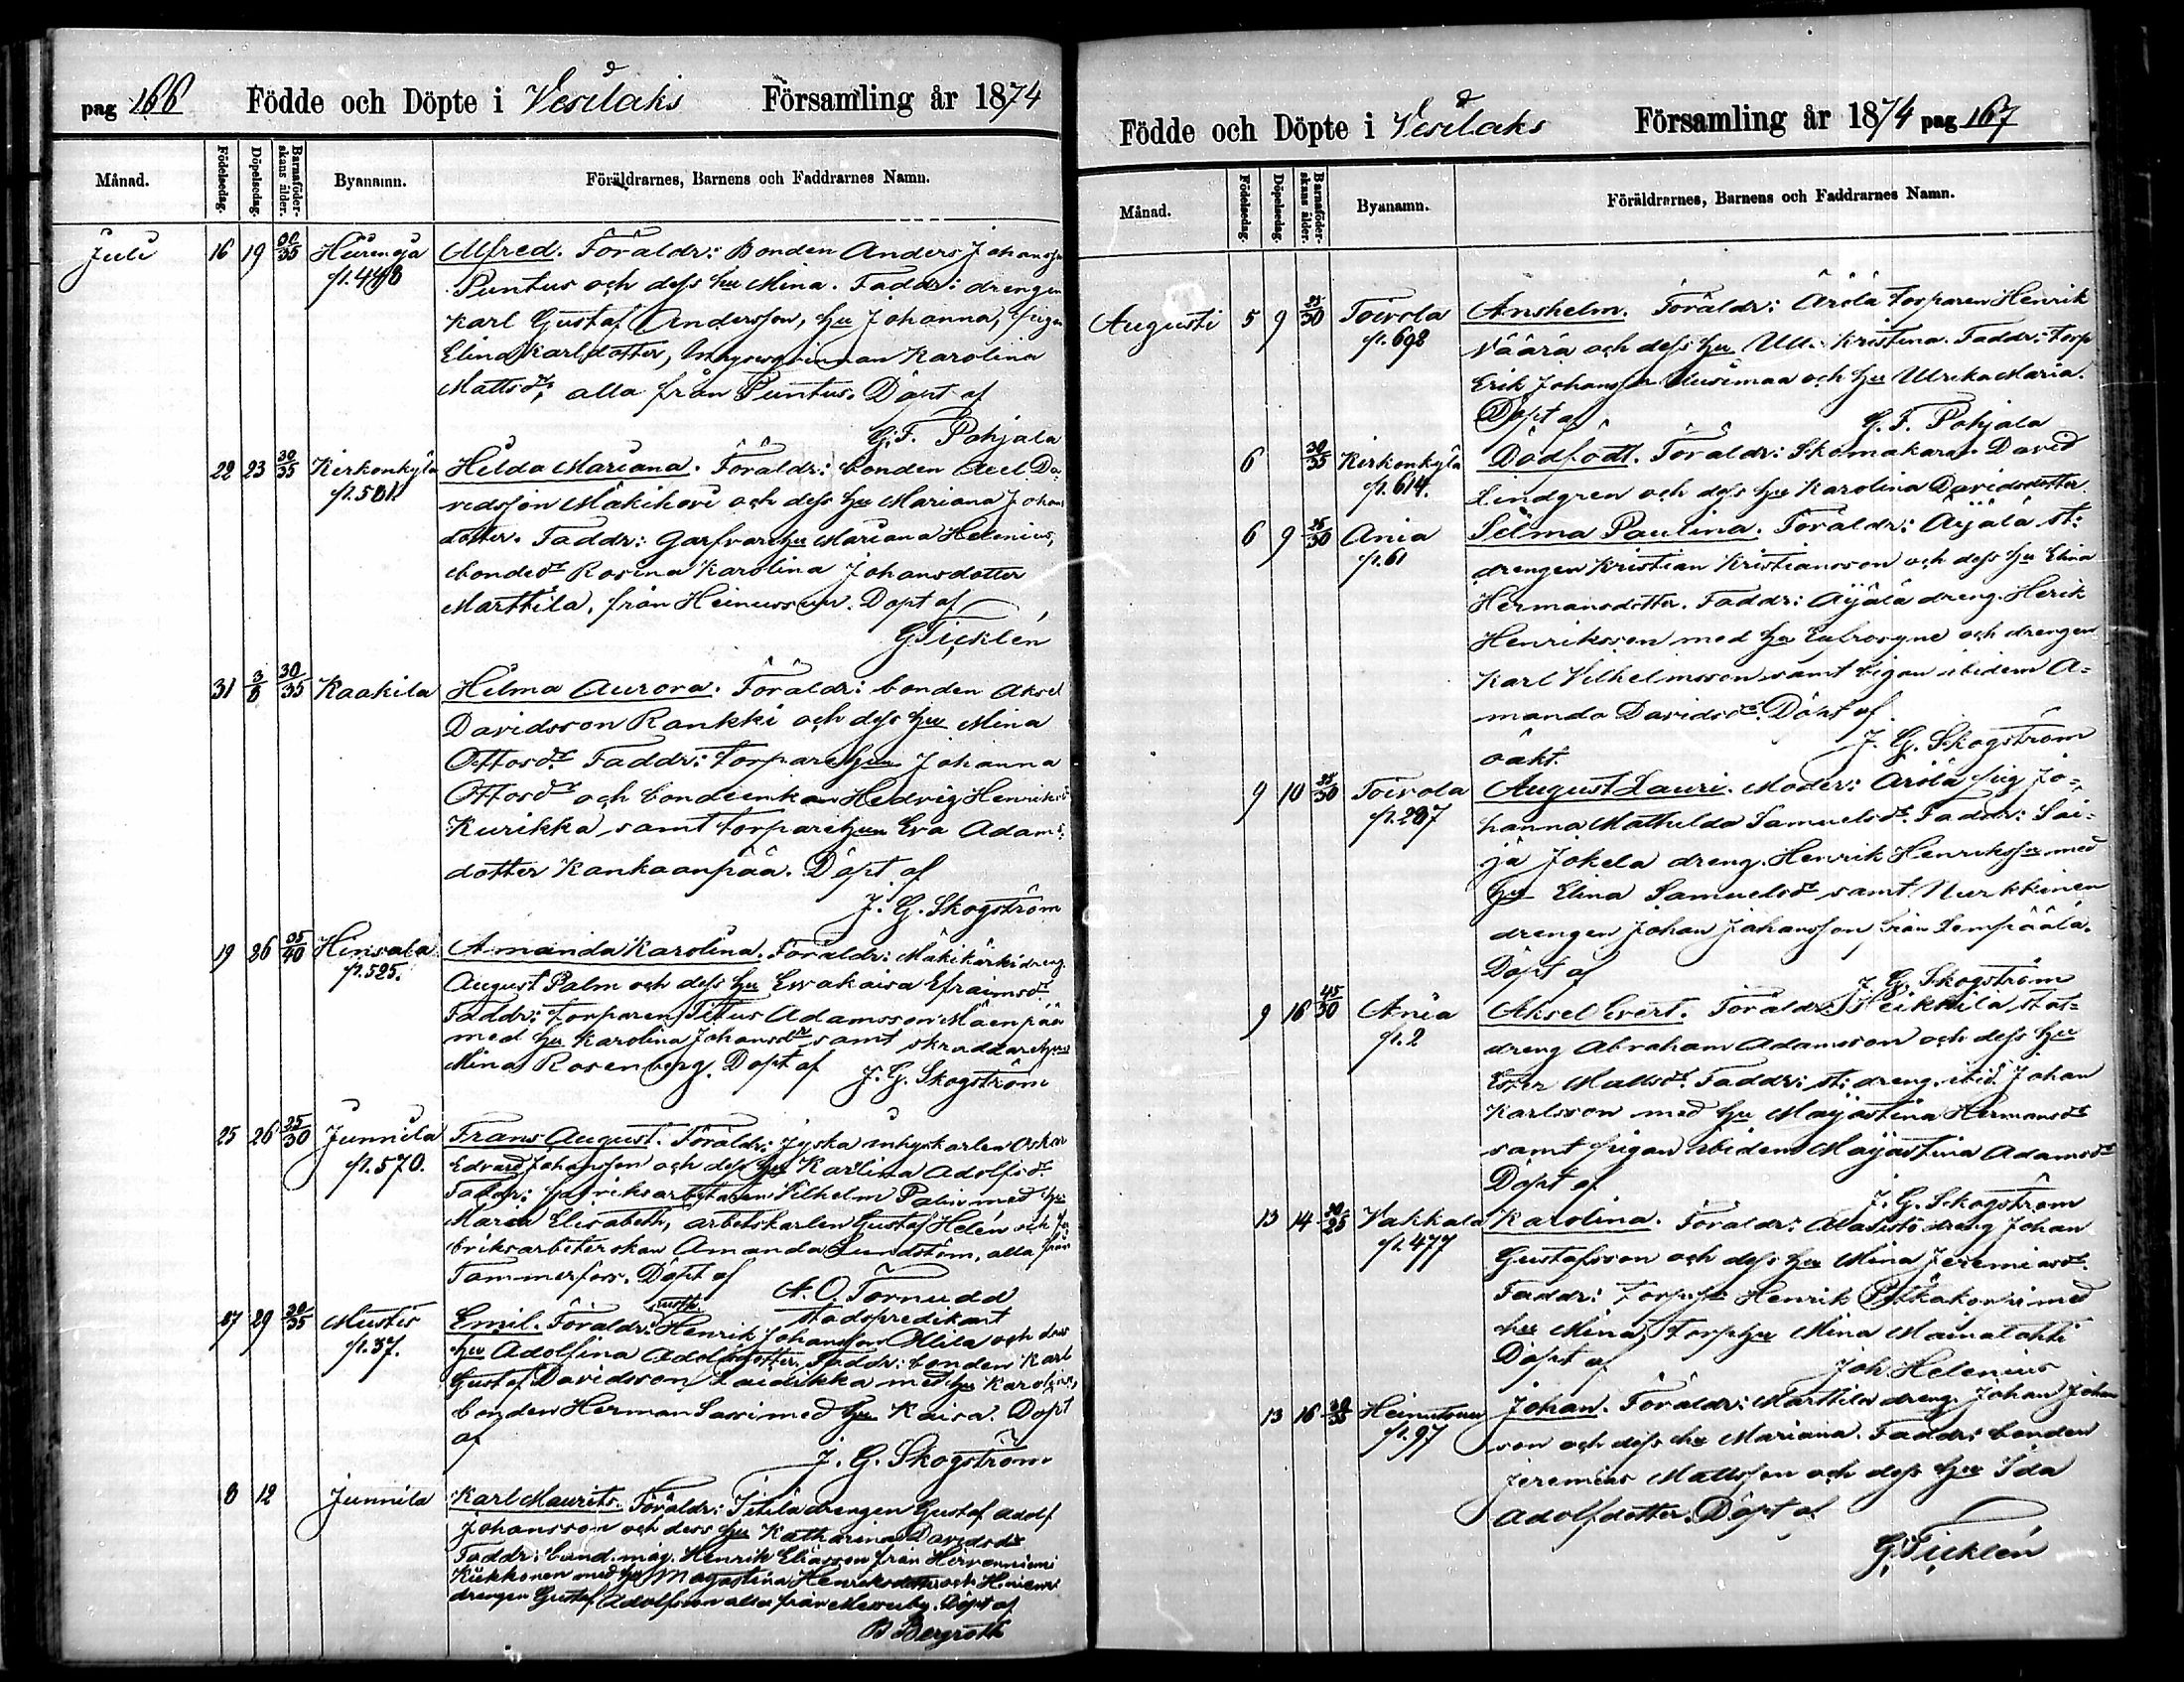 pag 166 Födde och Döpte i Vesilaks Församling år 1874
Månad. Födelsedag. Döpelsedag. Barnaföderskans ålder. Byanamn. Föräldrarnes, Barnens och Faddrarnes Namn.
Juli 16 19 30/35 Hurenoja Alfred. Föräldr: Bonden Anders Johansson
Puntus och dess hu Mina. Faddr: drengen
Karl Gustaf Andersson, hu Johanna, pigan
Elina Karlsdotter, Karolina
Mattsdr, alla från Puntus. Döpt af
G.F. Pohjala
22 23 30/35 Kirkonkylä Hilda Mariana. Föräldr: bonden Axel Da-
p. 501. vidsson Mäkikovi och dess hu Mariana Johans
dotter. Faddr: Garfvarehu Mariana Helenius,
bondedr Rosina Karolina Johansdotter
Marttila, från Heinusuu. Döpt af
G Ticklén
31 3/8 30/35 Kaakila Hilma Aurora. Föräldr: bonden Aksel
Davidsson Rankki och dess hu Mina
Ottosdr Faddr: torparehun Johanna
Ottosdr och bondeenkan Hedvig Henriksdr
Kurikka samt torparehun Eva Adams-
dotter Kankaanpää. Döpt af
J. G. Skogström
19 26 35/40 Hinsala Amanda Karolina. Föräldr: Mäkikärki dreng
p. 525. August Palm och dess hu Evvakaisa Efraimsdr
Faddr: torparen Titus Adamsson Mäenpää
med hu Karolina Johansdr samt skraddarehun
Mina Rosenberg. Döpt af J. G. Skogström
25 26 25/30 Junnila Frans August. Föräldr: Jyska inhyskarlen Oskar
p. 570. Edvard Johansson och dess hu Karlina Adolfsdr
Faddr: fabriksarbetaren Vilhelm Palin med hu
Maria Elisabeth, arbetskarlen Gustaf Helén och fa-
briksarbeterskan Amanda Lundström, alla från
Tammerfors. Döpt af A. O. Törnudd
stadspredikant
27 29 30/35 Mustis Emil. Föräldr: Henrik Johansson Ollila och dess
p. 37. hu Adolfina Adolfsdotter, Faddr: bonden Karl
Gustaf Davidsson Laurikka med hu Karolina,
bonden Herman Sassi med hu Kaisa. Döpt
af
J. G. Skogström
8 12 Junnila Karl Maurits. Föräldr: Itilä drengen Gustaf Adolf
Johansson och dess hu Katharina Davidsdr
Faddr: bond.måg. Henrik Eliasson från Hirvenniemi
Kukkonen med hu Majastina Henriksdotter och
drengen Gustaf Adolfsson alla från Messuby. Döpt af
B Bergroth
Födde och Döpte i Vesilaks Församling år 1874 pag 167
Månad. Födelsedag. Döpelsedag. Barnaföderskans ålder. Byanamn. Föräldrarnes, Barnens och Faddrarnes Namn.
Augusti 5 9 25/30 Toivola Anshelm. Föräldr: Arola torparen Henrik
p. 698 Väärä och dess hu Ull. Kristina. Faddr: torp
Erik Johansson Uusimaa och hu Ulrika Maria.
Döpt af G. F. Pohjala
6 30/35 Kirkonkylä Dödfödt. Föräldr: Skomakaren David
p. 614. Lindgren och dess hu Karolina Davidsdotter
6 9 25/30 Ania Selma Paulina. Föräldr: Äijälä st:
p. 61 drengen Kristian Kristiansson och dess hu Elina
Hermansdotter. Faddr: Äijälä dreng. Herik
Henriksson med hu Eufrosyne och drengen
Karl Vilhelmsson samt pigan ibidem A-
manda Davidsdr. Döpt af
oäkt. J. G. Skogström
9 10 25/30 Toivola August Lauri. Moder: Arola pig Jo-
p. 287 hanna Mathilda Samuelsdr. Faddr: Sai-
ja Jokela dreng. Henrik Henriksson med
hu Elina Samuelsdr samt Nurkkinen
drengen Johan Johansson, från Lempäälä.
Döpt af J. G. Skogström
9 16 45/50 Ania Aksel Evert. Föräldr: Peikkilä stat-
p. 2 dreng Abraham Adamsson och dess hu
Ester Mattsdr Faddr: st: dreng. ibid Johan
Karlsson med hu Majastina Hermansdr
samt pigan ibidem Majastina Adamsdr
Döpt af J. G. Skogström
13 14 Vakkala Karolina. Föräldr: Alasisto dreng Johan
p. 477 Gustafsson och dess hu Mina Jeremiasdr.
Faddr: Torp Henrik Pitkäkorpi med
hu Mina, Torphu Mina Mainalahti
Döpt af Joh Helenius
13 16 30/35 Heinusuu Johan. Föräldr: Marttila dreng Johan Johan
p. 97 son och dess hu Mariana. Faddr: bonden
Jeremias Mattsson och dess hu Ida
Adolfdotter. Döpt af
G Ticklén